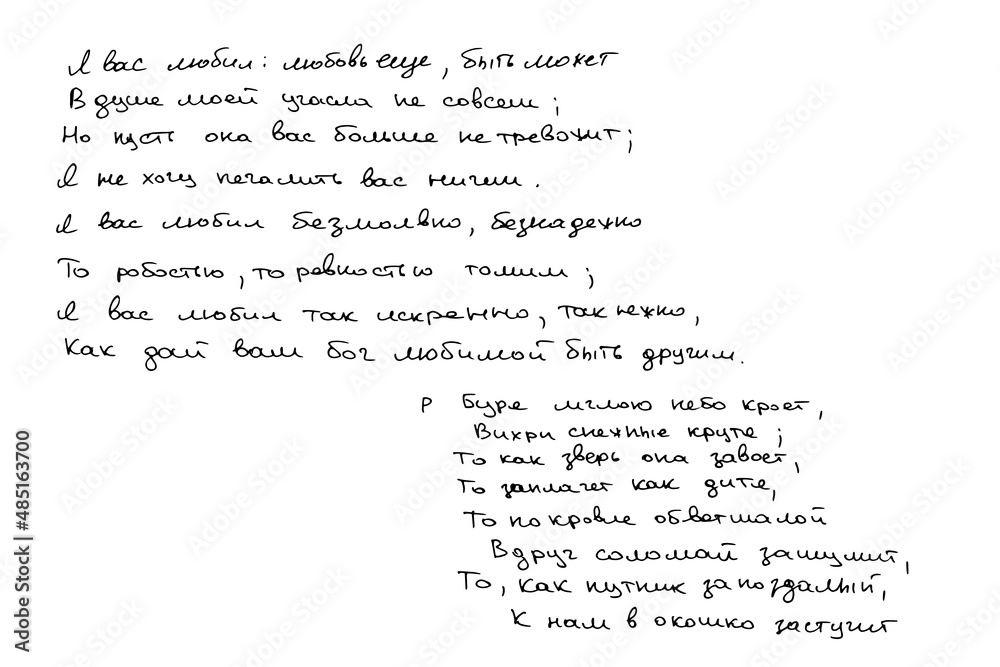 Я вас любил: любовь еще, быть может
В душе моей угасла не совсем;
Но пусть она вас больше не тревожит;
Я не хочу печалить вас ничем.
Я вас любил безмолвно, безнадежно
То робостью, то ревностью томим;
Я вас любил так искренно, так нежно,
Как дай вам бог любимой быть другим.
Р Буря мглою небо кроет,
Вихри снежные крутя;
То как зверь она завоет,
То заплачет как дитя,
То по кровле обветшалой
Вдруг соломой зашумит,
То, как путник запоздалый,
К нам в окошко застучит
Adobe Stock | #485163700